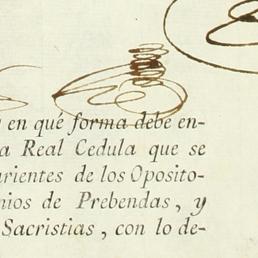 en qué forma debe en-
a Real Cedula que se
rientes de los Oposito-
nios de Prebendas, y
Sacristias, con lo de-